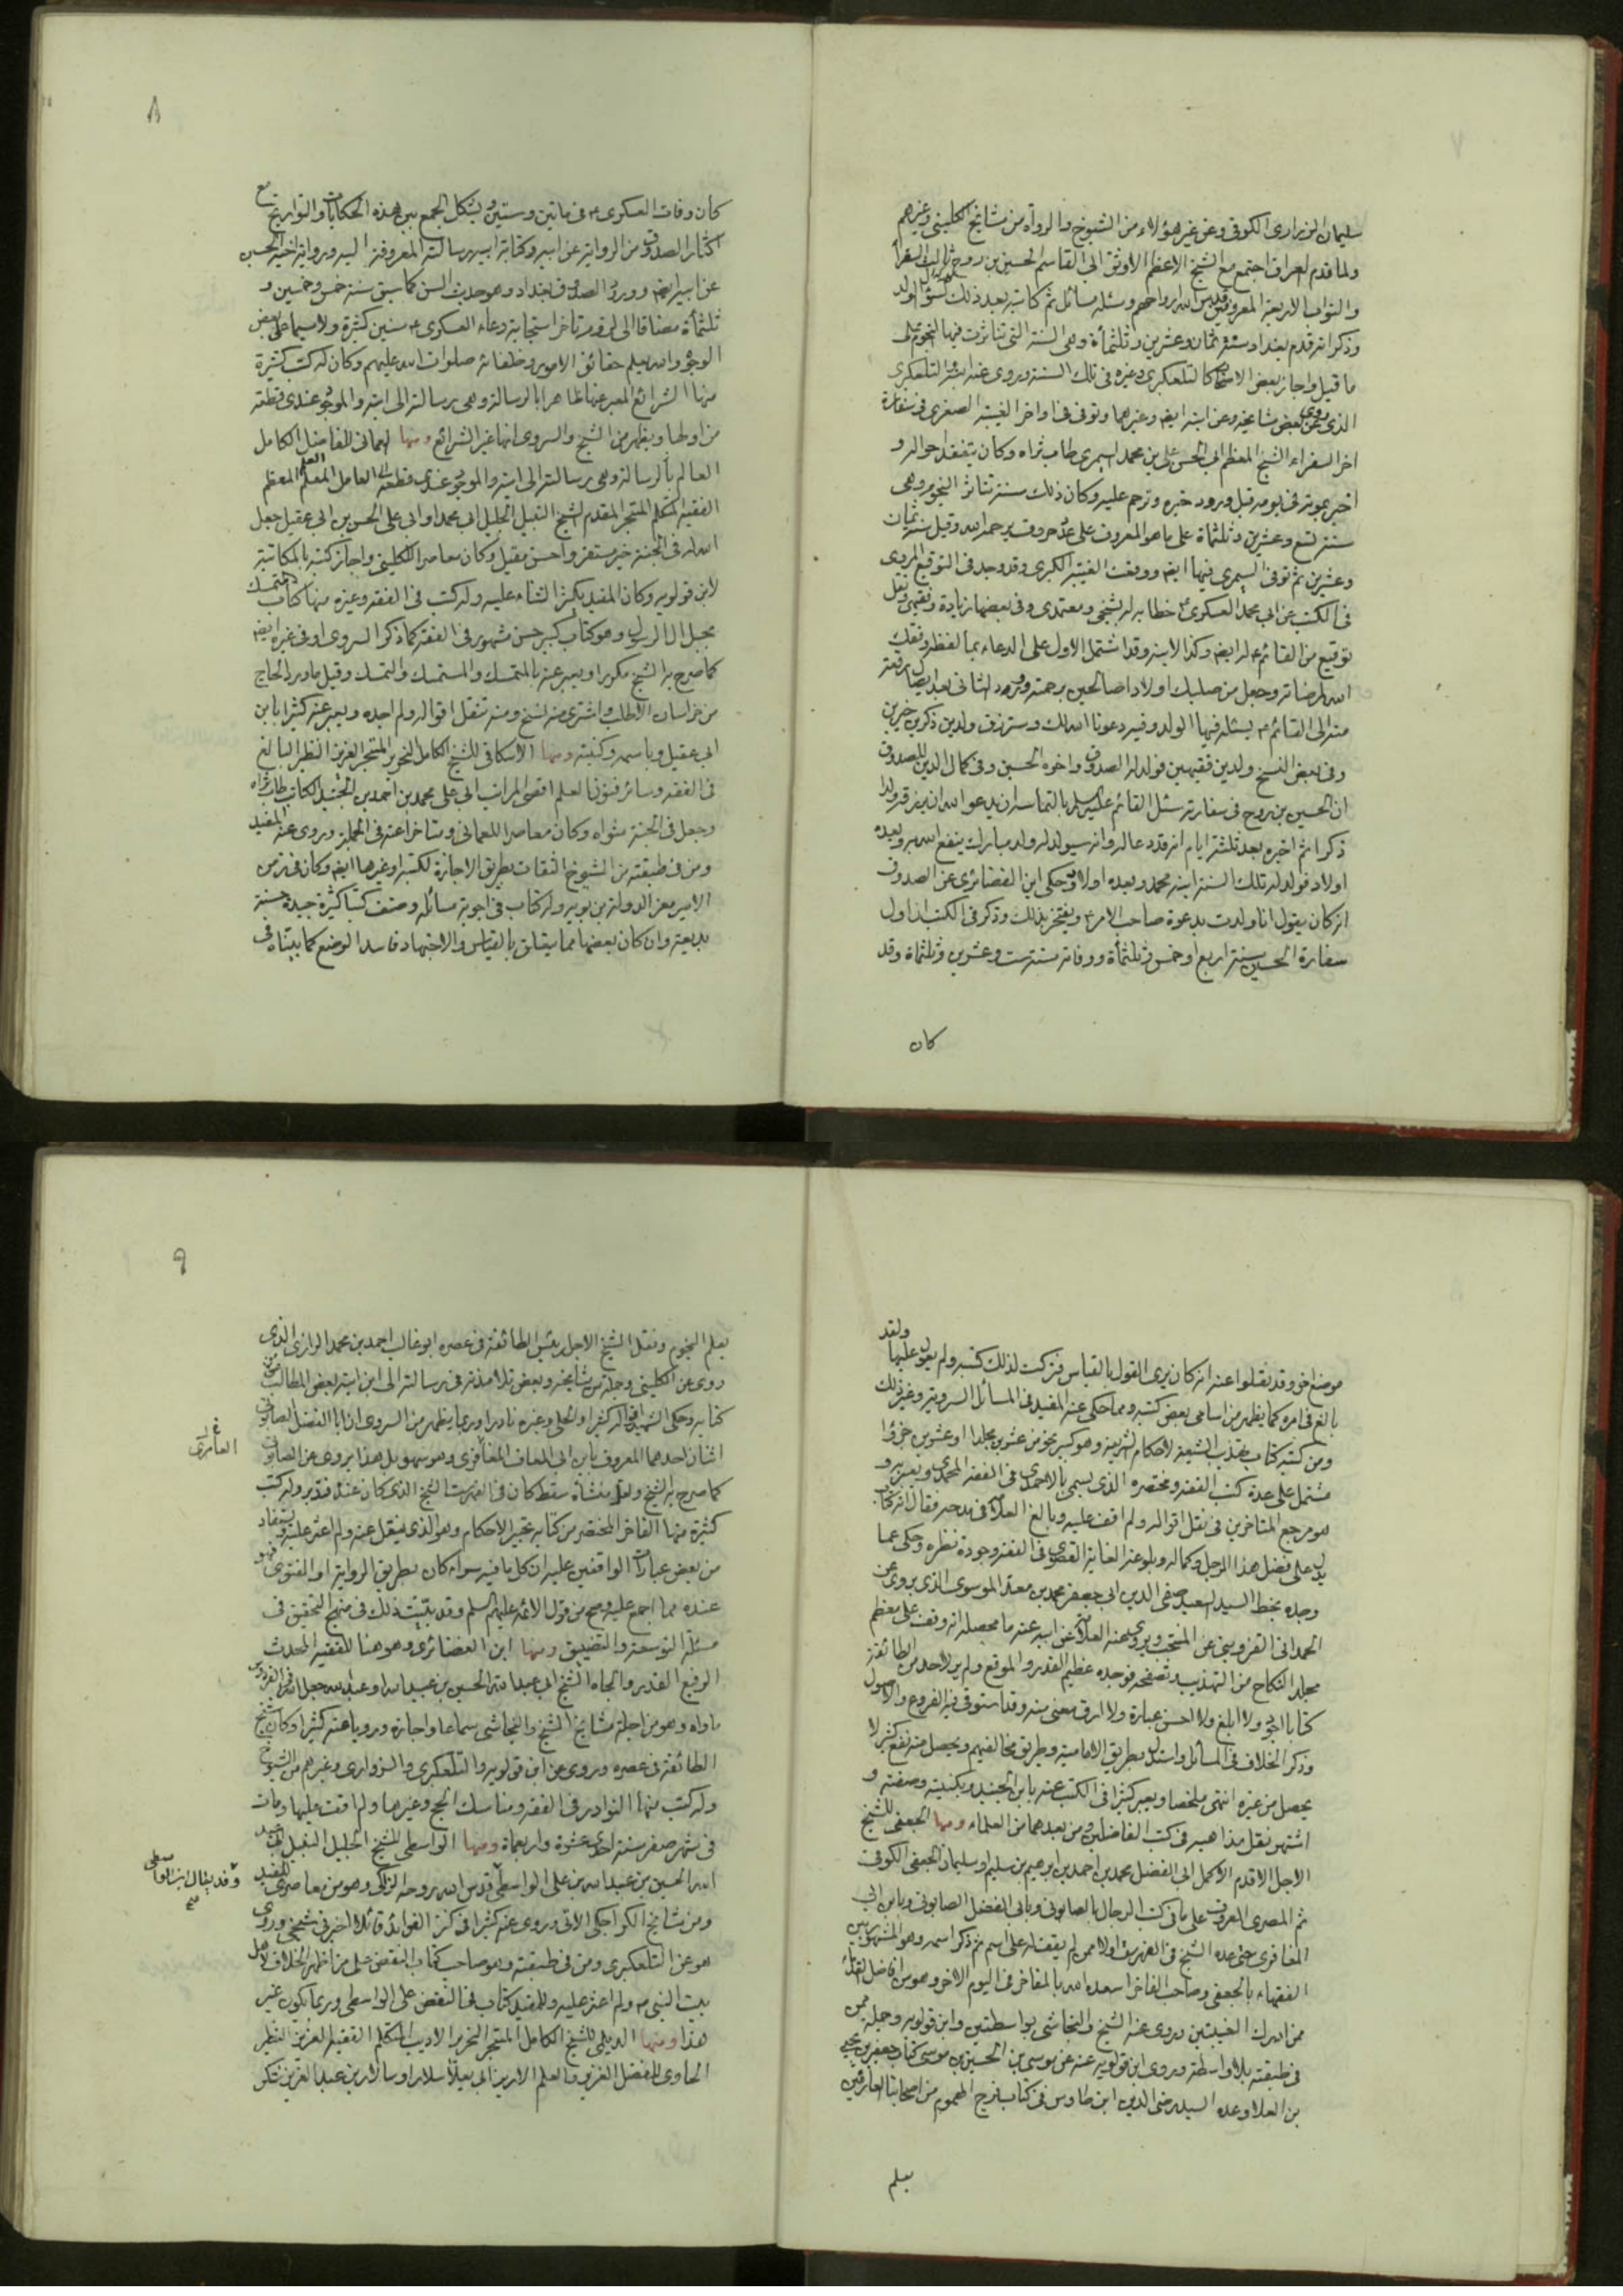 سليمان الزراري الكوفي وعن غير هؤلاء من الشيوخ والرواة من مشايخ الكليني وغيرهم
ولما قدم العراق اجتمع مع الشيخ الاعظم الاوثق ابي القاسم الحسين بن روح ثالث السفراء
والنواب الاربعة المعروفين قدس الله ارواحهم وسئله مسائل ثم كاتبه بعد ذلك لسؤال الولد
وذكر انه قدم بغداد سنة ثمان وعشرين وثلثمأة وهي السنة التي تناثرت فيها النجوم على
ما قيل واجاز بعض الاصحاب كالتلعكبري وغيره في تلك السنة وروى عنه التلعكبري
الذي روى عن بعض مشايخه وعن ابنه ايضا وغيرهما وتوفى في اواخر الغيبة الصغرى في سفارة
اخر السفراء الشيخ المعظم ابي الحسن علي بن محمد السمري طاب ثراه وكان يتفقد احواله و
اخبر بموته في يومه قبل ورود خبره وترحم عليه وكان ذلك سنة تناثر النجوم وهي
سنة تسع وعشرين وثلثمأة على ما هو المعروف على عدد حروف يرحمه الله وقيل سنة ثمان
وعشرين ثم توفى السمري فيها ايضا ووقعت الغيبة الكبرى وقد وجد في التوقيع المروي
في الكتب عن ابي محمد العسكري خطابه له بشيخي ومعتمدي وفي بعضها زيادة وفقيهي ونقل
توقيع من القائم له ايضا وكذا لابنه وقد اشتمل الاول على الدعاء بما لفظه وفقك
الله لمرضاته وجعل من صلبك اولادا صالحين برحمته وورد الثاني بعد ايصال رقعته
منه الى القائم يسئله فيها الولد وفيه دعونا الله لك وسترزق ولدين ذكرين خيرين
وفي بعض النسخ ولدين فقيهين فولد له الصدوق واخوه الحسين وفي كمال الدين للصدوق
ان الحسين بن روح في سفارته سئل القائم عليه السلم بالتماسه ان يدعو الله ان يرزقه ولدا
ذكرا ثم اخبره بعد ثلثة ايام انه قد دعا له وانه سيولد له ولد مبارك ينفع الله به وبعده
اولاد فولد له تلك السنة ابنه محمد وبعده اولاد وحكى ابن الغضائري عن الصدوق
انه كان يقول انا ولدت بدعوة صاحب الامر ويفتخر بذلك وذكر في الكتب ان اول
سفارة الحسين سنة اربع او خمس وثلثمأة ووفاته سنة ست وعشرين وثلثمأة وقد
كان
٨
كان وفات العسكري في ماتين وستين ويشكل الجمع بين هذه الحكايات والتواريخ مع
اكثار الصدوق من الرواية عن ابيه وكتابة ابيه رسالته المعروفة اليه ورواية اخيه الحسين
عن ابيه ايضا وورود الصدوق بغداد وهو حدث السن كما سبق سنة خمس وخمسين و
ثلثمأة مضافا الى لزوم تاخر استجابة دعاء العسكري سنين كثيرة ولا سيما على بعض
الوجوه والله يعلم حقائق الامور وخلفائه صلوات الله عليهم وكان له كتب كثيرة
منها الشرائع المعبر عنها ظاهرا بالرسالة وهي رسالته الى ابنه والموجود عندي قطعة
من اولها ويظهر من الشيخ والسروي انها غير الشرائع ومنها العماني للفاضل الكامل
العالم العامل المعلم العلم المعظم
الفقيه المتكلم المتبحر المقدم الشيخ النبيل الجليل ابي محمد او ابي علي الحسن بن ابي عقيل جعل
الله له في الجنة خير مستقر واحسن مقيل وكان معاصرا للكليني واجاز كتبه بالمكاتبة
لابن قولويه وكان المفيد يكثر الثناء عليه وله كتب في الفقه وغيره منها كتاب المتمسك
بحبل آل الرسول وهو كتاب كبير حسن مشهور في الفقه كما ذكر السروي او في غيره ايضا
كما صرح به الشيخ مكررا ويعبر عنه بالمتمسك والمستمسك والتمسك وقيل ما ورد الحاج
من خراسان الا طلب واشترى منه نسخ ومنه تنقل اقواله ولم اجده ويعبر عنه كثيرا بابن
ابي عقيل وباسمه وكنيته ومنها الاسكافي للشيخ الكامل النحرير المتبحر العزيز النظير البالغ
في الفقه وسائر فنون العلم اقصى المراتب ابي علي محمد بن احمد بن الجنيد الكاتب طاب ثراه
وجعل في الجنة مثواه وكان معاصرا للعماني ومتاخرا عنه في الجملة وروى عنه المفيد
ومن في طبقته من الشيوخ الثقات بطريق الاجازة لكتبه او غيرها ايضا وكان في زمن
الامير معز الدولة بن بويه وله كتاب في اجوبة مسائله وصنف كتبا كثيرة جيدة حسنة
بديعة وان كان بعضها مما يتعلق بالقياس والاجتهاد فاسد الوضع كما بيناه في
موضع اخر وقد نقلوا عنه انه كان يرى القول بالقياس فتركت لذلك كتبه ولم يعول عليها ولقد
بالغ في امره كما يظهر من اسامي بعض كتبه ومما حكى عنه المفيد في المسائل السروية وغير ذلك
ومن كتبه كتاب تهذيب الشيعة لاحكام الشريعة وهو كبير نحو من عشرين مجلدا او عشرين جزءا
مشتمل على عدة كتب الفقه ومختصره الذي يسمى بالاحمدي في الفقه المحمدي و
هو مرجع المتاخرين في نقل اقواله ولم اقف عليه وبالغ العلامة في مدحه فقال انه كتاب
يدل على فضل هذا الرجل وكماله وبلوغه الغاية القصوى في الفقه وجودة نظره وحكى عما
وجده بخط السيد السعيد صفي الدين ابي جعفر محمد بن معد الموسوي الذي يروي عن
الحمداني القزويني عن المنتجب ويروي عنه العلامة عن ابيه عنه ما محصله انه وقف على معظم
مجلد النكاح من التهذيب وتصفحه فوجده عظيم القدر والموقع ولم ير لاحد من الطائفة
كتابا اجود ولا ابلغ ولا احسن عبارة ولا ارق معنى منه وقد استوفى فيه الفروع والاصول
وذكر الخلاف في المسائل واستدل بطريق الامامية وطريق مخالفيهم ويحصل منه نفع كثير لا
يحصل من غيره انتهى ملخصا ويعبر كثيرا في الكتب عنه بابن الجنيد وبكنيته وصفته و
اشتهر نقل مذاهبه في كتب الفاضلين ومن بعدهما من العلماء ومنها الجعفي للشيخ
الاجل الاقدم الاكمل ابي الفضل محمد بن احمد بن ابرهيم بن سليم او سليمان الجعفي الكوفي
ثم المصري المعروف على ما في كتب الرجال بالصابوني وبابي الفضل الصابوني وبابن ابي
المعافري حتى عده الشيخ في الفهرست اولا ممن لم يقف له على اسم ثم ذكر اسمه وهو المشهور بين
الفقهاء بالجعفي وصاحب الفاخر اسعده الله بالمفاخر في اليوم الاخر وهو من افاضل القدماء
ممن ادرك الغيبتين وروى عنه الشيخ والنجاشي بواسطتين وابن قولويه وجملة ممن
في طبقته بلا واسطة وروى ابن قولويه عنه عن موسى بن الحسين بن موسى كتاب جعفر بن يحيى
بن العلا وعده السيد رضي الدين ابن طاوس في كتاب فرج المهموم من اصحابنا العارفين
بعلم
٩
بعلم النجوم ونقل الشيخ الاجل رئيس الطائفة في عصره ابو غالب احمد بن محمد الزراري الذي
روى عن الكليني وجملة من مشايخه وبعض تلامذته في رسالته الى ابن ابنه بعض المطالب من
كتابه وحكى الشهيد اقواله كثيرا والحلي وغيره نادرا وربما يظهر من السروي ان ابا الفضل الصابوني
اثنان احدهما المعروف بابن ابي العساف المغافري وهو سهو بل هذا يروي عن الصابوني
العامري
كما صرح به الشيخ ولعل منشأه سقط كان في الفهرست الشيخ الذي كان عنده فتدبر وله كتب
كثيرة منها الفاخر المختصر من كتابه تحبير الاحكام وهو الذي ينقل عنه ولم اعثر عليه ويستفاد
من بعض عبارات الواقفين عليه ان كل ما فيه سواء كان بطريق الرواية او الفتوى فهو
عنده مما اجمع عليه وصح من قول الائمة عليهم السلم وقد بينت ذلك في منهج التحقيق في
مسئلة التوسعة والتضييق ومنها ابن الغضائري وهو هنا للفقيه المحدث
الرفيع القدر والجاه الشيخ ابي عبد الله الحسين بن عبيد الله او عبد الله جعل الله في الفردوس
ماواه وهو من اجلة مشايخ الشيخ والنجاشي سماعا واجازة ورويا عنه كثيرا وكان شيخ
الطائفة في عصره وروى عن ابن قولويه والتلعكبري والزراري وغيرهم من الشيوخ
وله كتب منها النوادر في الفقه ومناسك الحج وغيرها ولم اقف عليها ومات
في شهر صفر سنة احدى عشرة واربعمأة ومنها الواسطي للشيخ الجليل النبيل ابي عبد
الله الحسين بن عبيد الله بن علي الواسطي قدس الله روحه الزكي وهو من معاصري المفيد
وقد يقال ابن الواسطي
ومن مشايخ الكراجكي الاتي وروى عنه كثيرا في كنز الفوائد قائلا اخبرني شيخي وروى
هو عن التلعكبري ومن في طبقته وهو صاحب كتاب النقض على من اظهر الخلاف لاهل
بيت النبي ولم اعثر عليه وللمفيد كتاب في النقض على الواسطي وربما يكون غير
هذا ومنها الديلمي للشيخ الكامل المتبحر النحرير الاديب المتكلم الفقيه العزيز النظير
الحاوي للفضل الغزير والعلم ابي يعلى سلار او سالار بن عبد العزيز